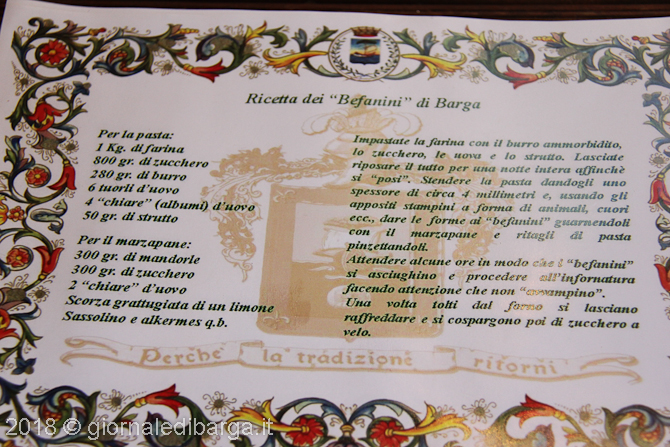 Ricetta dei "Befanini" di Barga
Per la pasta:
1 Kg. di farina
800 gr. di zucchero
280 gr. di burro
6 tuorli d'uovo
4 "chiare" (albumi) d'uovo
50 gr. di strutto
Per il marzapane:
300 gr. di mandorle
300 gr. di zucchero
2 "chiare" d'uovo
Scorza grattugiata di un limone
Sassolino e alkermes q.b.
Impastate la farina con il burro ammorbidito,
lo zucchero, le uova e lo strutto. Lasciate
riposare il tutto per una notte intera affinchè
si "posi". Stendere la pasta dandogli uno
spessore di circa 4 millimetri e, usando gli
appositi stampini a forma di animali, cuori
ecc., dare le forme ai "befanini" guarnendoli
con il marzapane e ritagli di pasta
pinzettandoli.
Attendere alcune ore in modo che i "befanini"
si asciughino e procedere all'infornatura
facendo attenzione che non "avvampino".
Una volta tolti dal forno si lasciano
raffreddare e si cospargono poi di zucchero a
velo.
Perche' la tradizione ritorni
2018 © giornaledibarga.it